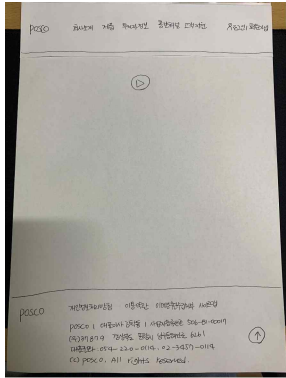 posco 회사소개 제품 투자정보 홍보채널 고객지원
posco 개인정보처리방침 이용약관 이메일무단수집거부 사이트맵
posco | 대표이사 김학동 | 사업자등록번호 506-81-00017
(우)37877 경상북도 포항시 남구 동해안로 6261
대표전화: 054-220-0114, 02-3457-0114
(c) posco. All rights Reserved.